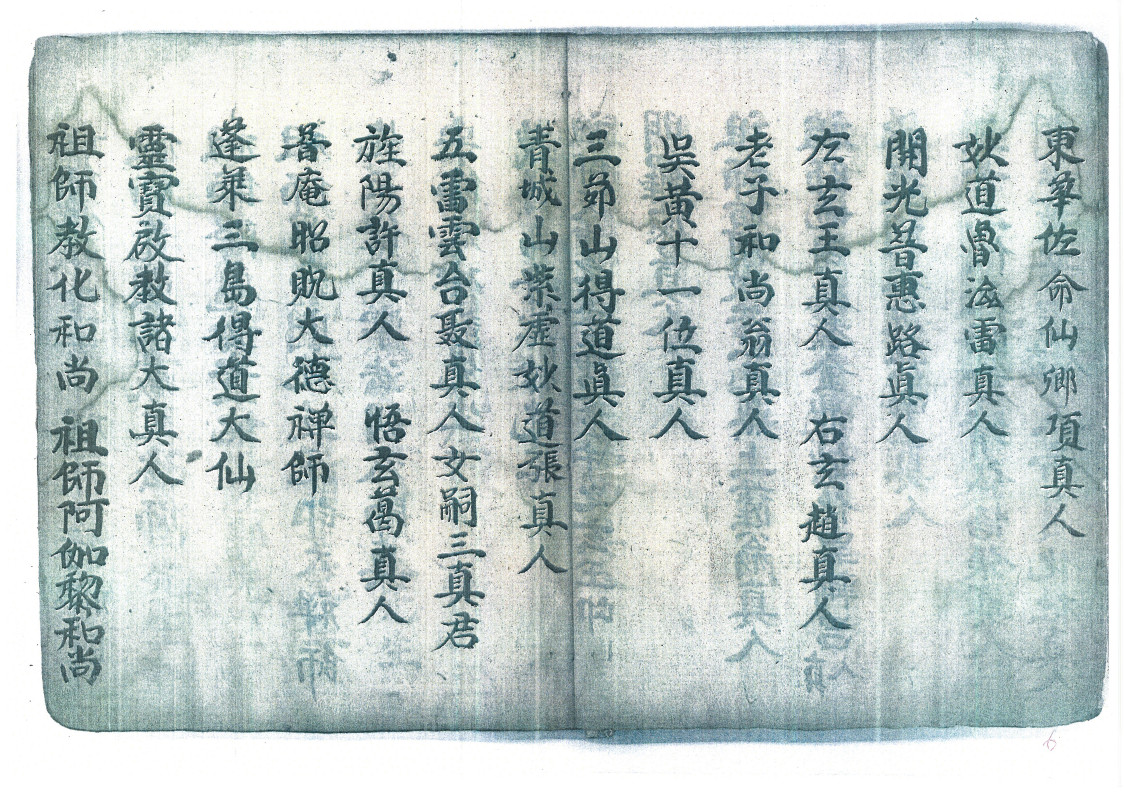 東華佐命仙卿項真人
妙道魯法雷真人
開光普惠路眞人
左玄王真人 右玄趙真人
老子和尚翁真人
吳黃十一位真人
三茆山得道眞人
青城山紫虛妙道張真人
五雷雲台聂真人女嗣三真君
旌陽許真人 悟玄葛真人
普庵昭貺大德禅師
蓬莱三島得道大仙
靈寶啟教諸大真人
祖師教化和尚 祖師阿伽黎和尚
6